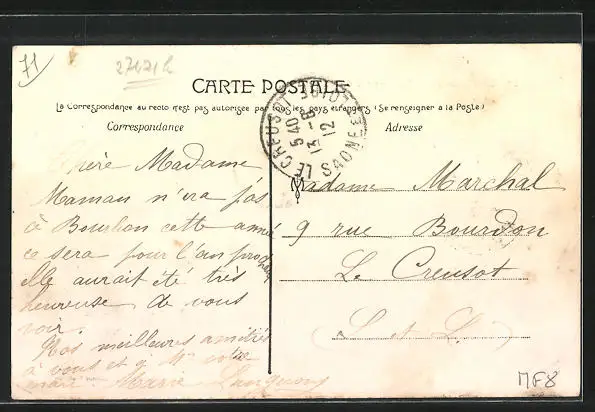 71
27471 R
CARTE POSTALE
La Correspondance au recto n'est pas autorisée par tous les pays étrangers (Se renseigner à la Poste)
Correspondance
Adresse
LE CREUSOT SAONE-ET-LOIRE
5 40
13 -8
12
Madame
Maman n'ira pas
à Bourbon cette année
ce sera pour l'an prochain
elle aurait été très
heureuse de vous
voir.
Nos meilleures amitiés
à vous et à Mr votre
mari. Marie
Madame Marchal
9 rue Bourdon
Le Creusot
S et L.
MF8